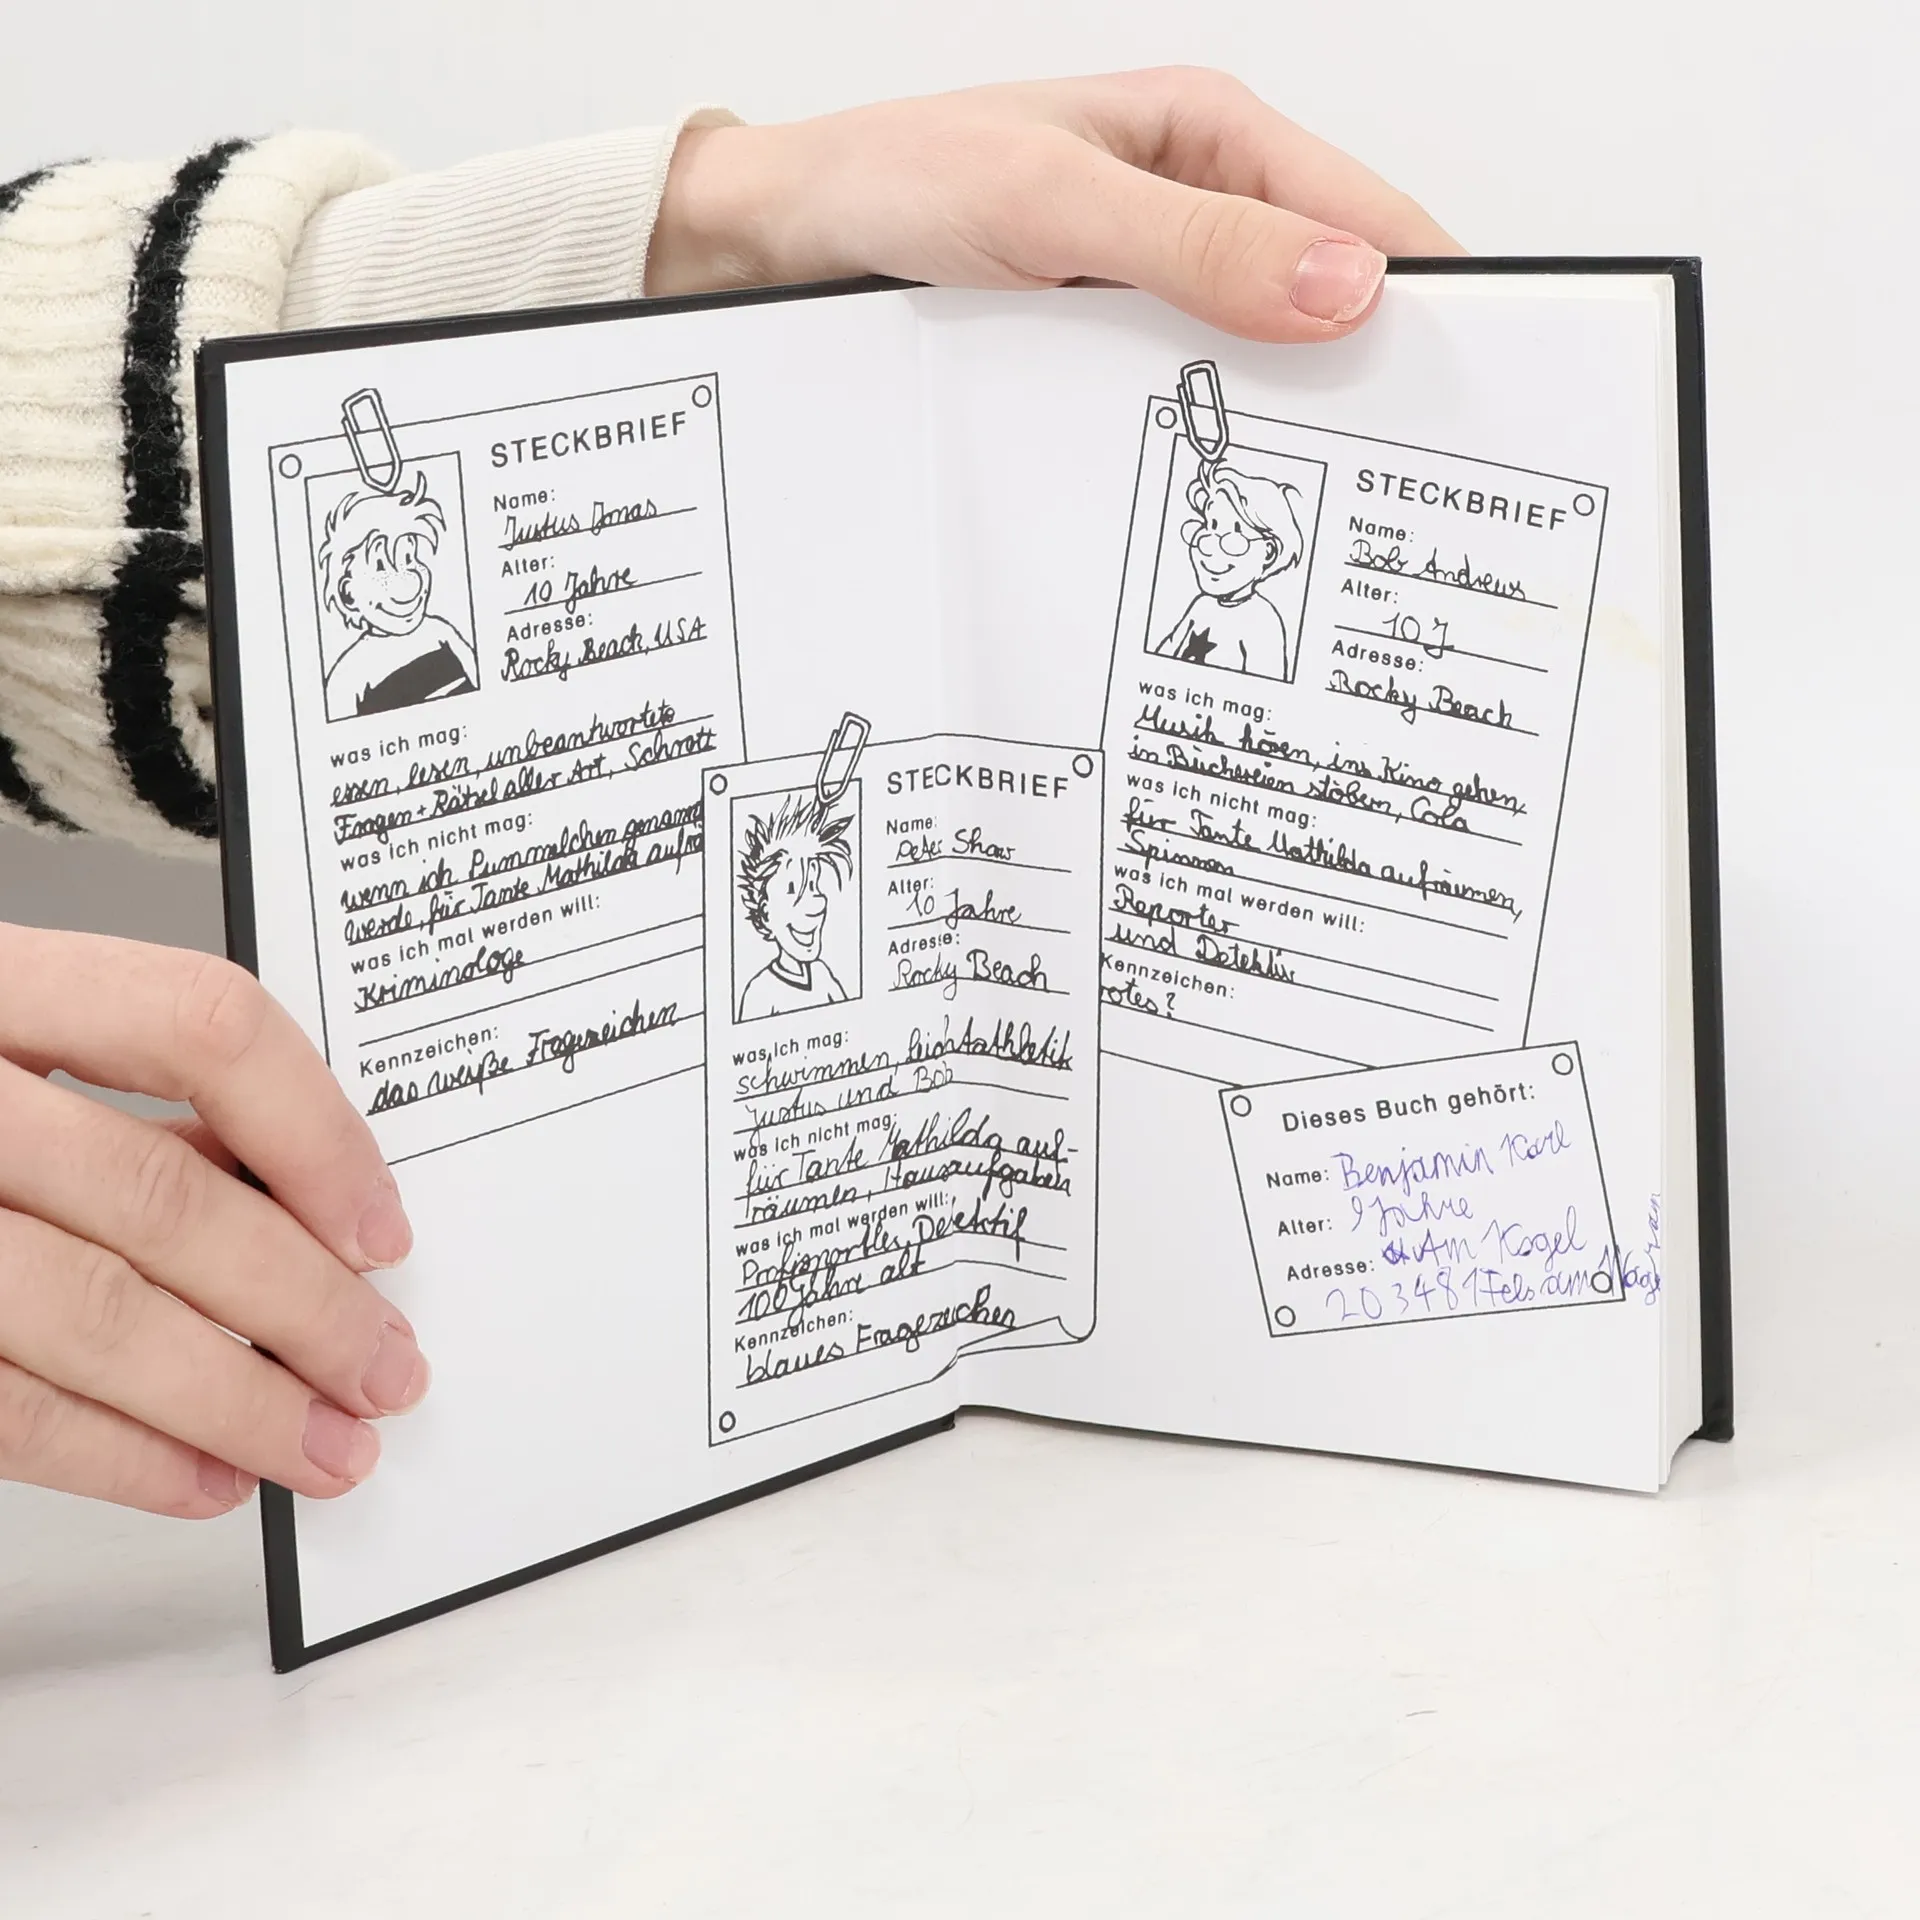 STECKBRIEF
Name:
Justus Jonas
Alter:
10 Jahre
Adresse:
Rocky Beach, USA
was ich mag:
essen, lesen, unbeantwortete
Fragen + Rätsel aller Art, Schrott
was ich nicht mag:
wenn ich Pummelchen genannt
werde, für Tante Mathilda aufrä
was ich mal werden will:
Kriminologe
Kennzeichen:
das weiße Fragezeichen
STECKBRIEF
Name:
Peter Shaw
Alter:
10 Jahre
Adresse:
Rocky Beach
was ich mag:
schwimmen, Leichtathletik
Justus und Bob
was ich nicht mag:
für Tante Mathilda auf-
räumen, Hausaufgaben
was ich mal werden will:
Profisportler, Detektif
100 Jahre alt
Kennzeichen:
blaues Fragezeichen
STECKBRIEF
Name:
Bob Andrews
Alter:
10 J
Adresse:
Rocky Beach
was ich mag:
Musik hören, ins Kino gehen,
in Büchereien stöbern, Cola
was ich nicht mag:
für Tante Mathilda aufräumen,
Spinnen
was ich mal werden will:
Reporter
und Detektiv
Kennzeichen:
rotes ?
Dieses Buch gehört:
Name: Benjamin Karl
Alter: 9 Jahre
Adresse: Am Kogel
20 3481 Fels am Wagram